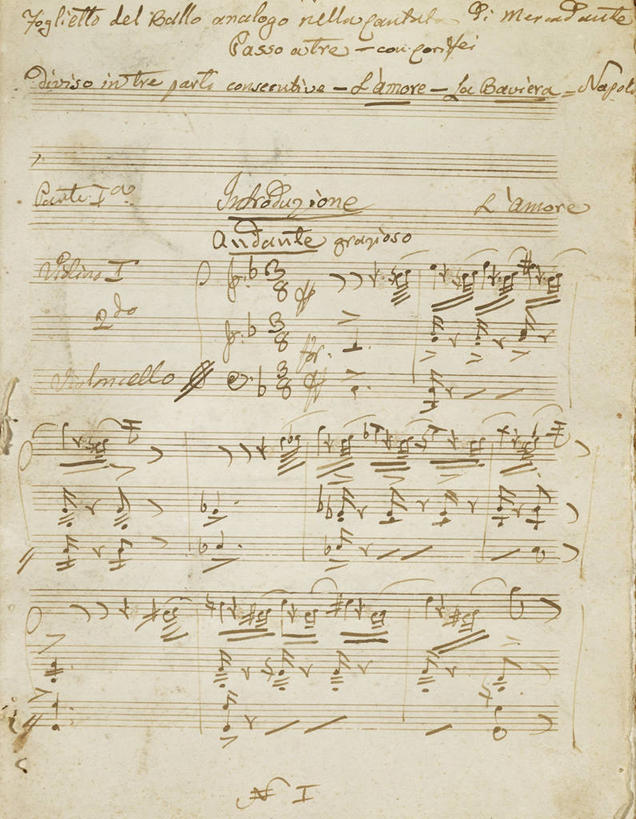 Foglietto del Ballo analogo nella Cantata Di Mercadante
Passo a tre - con corifei
Diviso in tre parti consecutive - L'amore - La Baviera - Napoli
Parte I.a Introduzione L'amore
Andante grazioso
Violino I
2.do
for.
Violoncello
N I